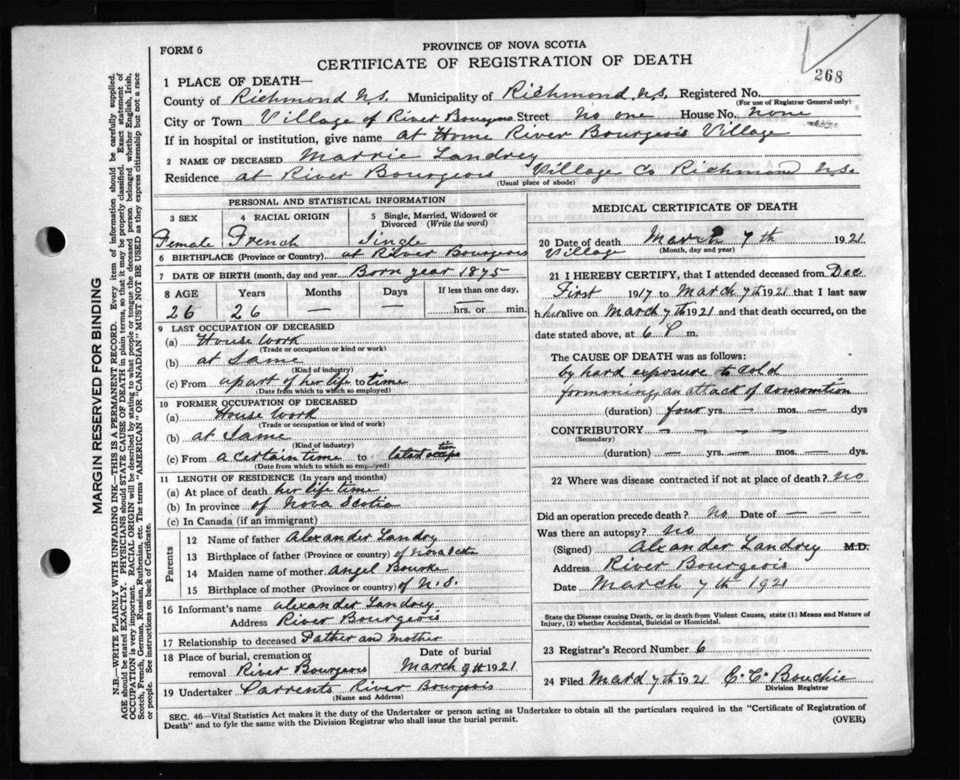 FORM 6
PROVINCE OF NOVA SCOTIA
CERTIFICATE OF REGISTRATION OF DEATH
268
1 PLACE OF DEATH—
County of Richmond N.S. Municipality of Richmond N.S. Registered No.
(For use of Registrar General only)
City or Town Village of River Bourgeois Street No one House No. none
If in hospital or institution, give name at Home River Bourgeois Village
2 NAME OF DECEASED Marrie Landrey
Residence at River Bourgeois Village Co Richmond N.S.
(Usual place of abode)
PERSONAL AND STATISTICAL INFORMATION
3 SEX 4 RACIAL ORIGIN 5 Single, Married, Widowed or Divorced (Write the word)
Female French Single
6 BIRTHPLACE (Province or Country) at River Bourgeois Village
7 DATE OF BIRTH (month, day and year Born year 1895
8 AGE Years Months Days If less than one day,
26 26 — — — hrs. or min.
9 LAST OCCUPATION OF DECEASED
(a) House Work
(Trade or occupation or kind or work)
(b) at Same
(Kind of industry)
(c) From apart of her life to time
(Date from which to which so employed)
10 FORMER OCCUPATION OF DECEASED
(a) House Work
(Trade or occupation or kind or work)
(b) at Same
(Kind of industry)
(c) From a certain time to latest
(Date from which to which so employed)
11 LENGTH OF RESIDENCE (In years and months)
(a) At place of death her life time
(b) In province of Nova Scotia
(c) In Canada (if an immigrant)
Parents
12 Name of father Alexander Landry
13 Birthplace of father (Province or country) of Nova Scotia
14 Maiden name of mother Angel Bourke
15 Birthplace of mother (Province or country) of N.S.
16 Informant's name Alexander Landrey
Address River Bourgeois
17 Relationship to deceased Father an Mother
18 Place of burial, cremation or removal River Bourgeois Date of burial March 9th 1921
19 Undertaker Parrents River Bourgeois
(Name and Address)
MEDICAL CERTIFICATE OF DEATH
20 Date of death March 7th 1921
(Month, day and year)
21 I HEREBY CERTIFY, that I attended deceased from Dec
First 1917 to March 7th 1921 that I last saw
her alive on March 7th 1921 and that death occurred, on the
date stated above, at 6 P m.
The CAUSE OF DEATH was as follows:
by hard exposure to cold
formoning an attack of Consomtion
(duration) four yrs. — mos. — dys
CONTRIBUTORY — — — —
(Secondary)
(duration) — yrs. — mos. — dys.
22 Where was disease contracted if not at place of death? no
Did an operation precede death? No Date of — — —
Was there an autopsy? no
(Signed) Alxander Landrey M.D.
Address River Bourgeois
Date March 7th 1921
State the Disease causing Death, or in death from Violent Causes, state (1) Means and Nature of
Injury, (2) whether Accidental, Suicidal or Homicidal.
23 Registrar's Record Number 6
24 Filed March 7th 1921 C. C. Bouchie
Division Registrar
SEC. 46—Vital Statistics Act makes it the duty of the Undertaker or person acting as Undertaker to obtain all the particulars required in the "Certificate of Registration of
Death" and to fyle the same with the Division Registrar who shall issue the burial permit.
(OVER)
MARGIN RESERVED FOR BINDING
N.B.—WRITE PLAINLY WITH UNFADING INK—THIS IS A PERMANENT RECORD. Every item of information should be carefully supplied.
AGE should be stated EXACTLY. PHYSICIANS should STATE CAUSE OF DEATH in plain terms, so that it may be properly classified. Exact statement of
OCCUPATION is very important. RACIAL ORIGIN will be described by stating to what people or tongue the deceased person belonged whether English, Irish,
Scotch, French, German, Russian, Ruthenian, etc. The terms "AMERICAN" OR "CANADIAN" MUST NOT BE USED as they express citizenship but not a race
or people. See instructions on back of Certificate.